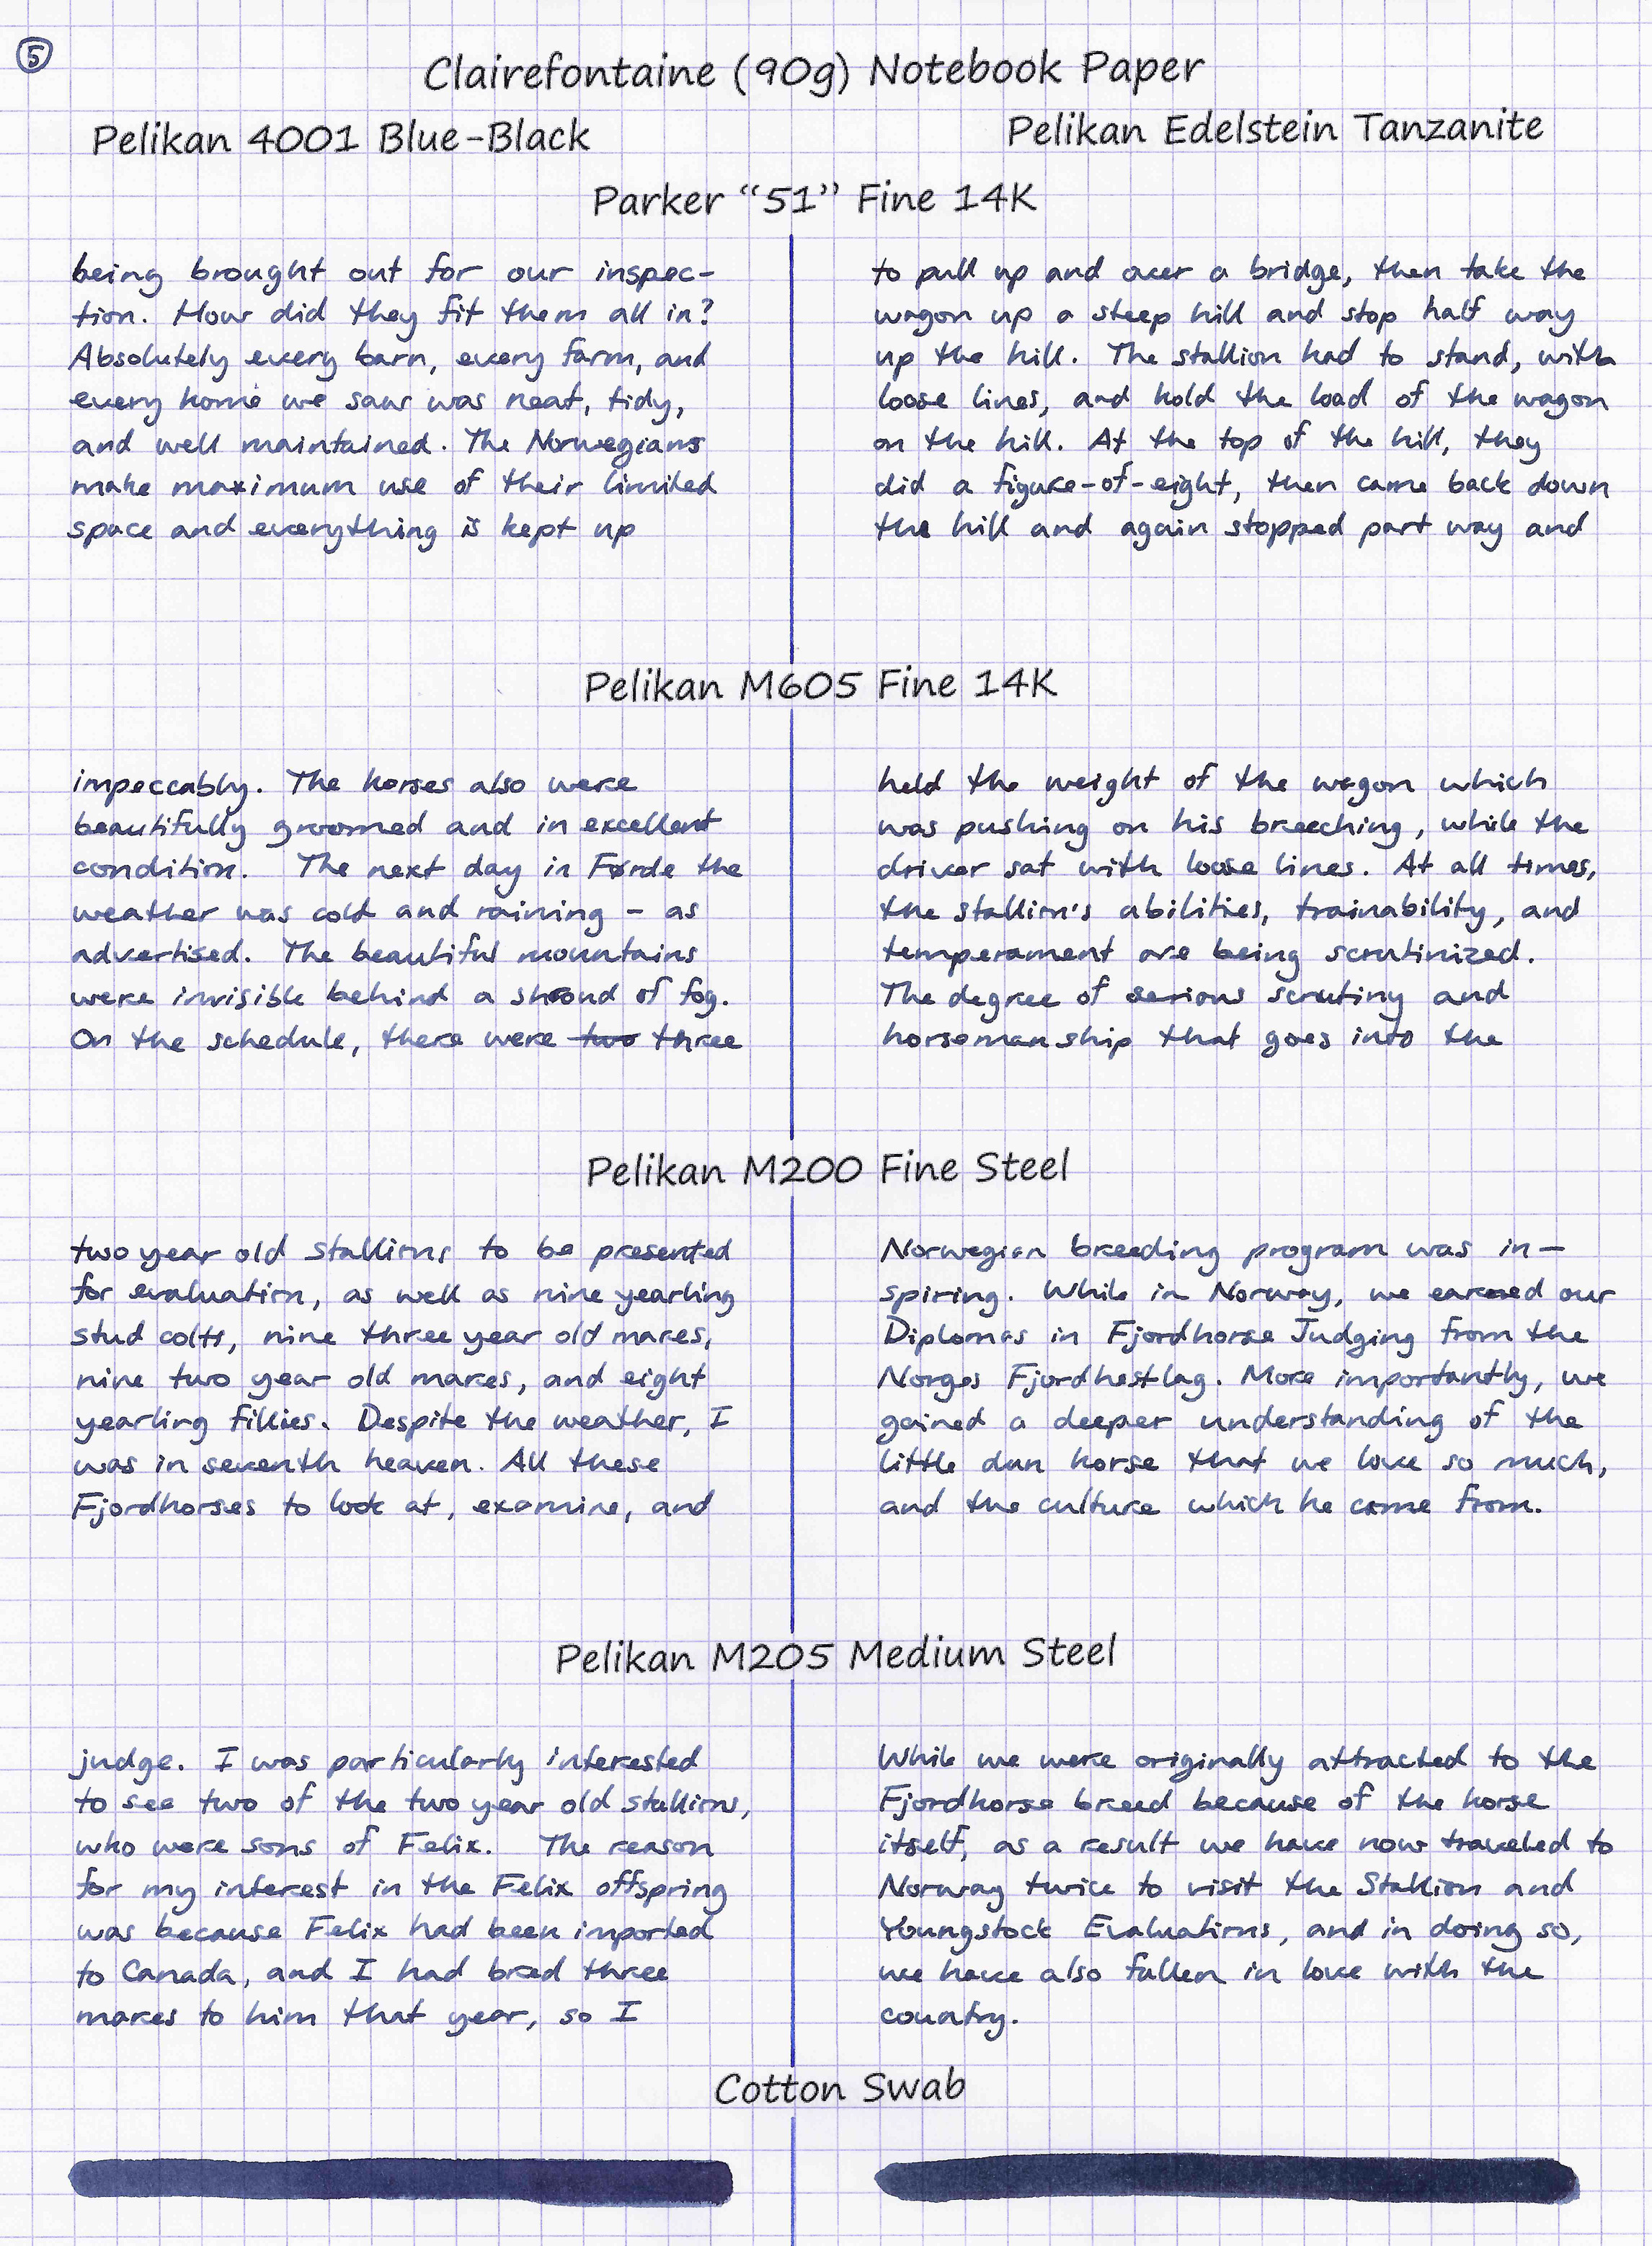 5
Clairefontaine (90g) Notebook Paper
Pelikan 4001 Blue-Black
Pelikan Edelstein Tanzanite
Parker “51” Fine 14K
being brought out for our inspec-
tion. How did they fit them all in?
Absolutely every barn, every farm, and
every home we saw was neat, tidy,
and well maintained. The Norwegians
make maximum use of their limited
space and everything is kept up
to pull up and over a bridge, then take the
wagon up a steep hill and stop half way
up the hill. The stallion had to stand, with
loose lines, and hold the load of the wagon
on the hill. At the top of the hill, they
did a figure-of-eight, then came back down
the hill and again stopped part way and
Pelikan M605 Fine 14K
impeccably. The horses also were
beautifully groomed and in excellent
condition. The next day in Førde the
weather was cold and raining - as
advertised. The beautiful mountains
were invisible behind a shroud of fog.
On the schedule, there were two three
held the weight of the wagon which
was pushing on his breeching, while the
driver sat with loose lines. At all times,
the stallion's abilities, trainability, and
temperament are being scrutinized.
The degree of serious scrutiny and
horsemanship that goes into the
Pelikan M200 Fine Steel
two year old stallions to be presented
for evaluation, as well as nine yearling
stud colts, nine three year old mares,
nine two year old mares, and eight
yearling fillies. Despite the weather, I
was in seventh heaven. All these
Fjordhorses to look at, examine, and
Norwegian breeding program was in-
spiring. While in Norway, we earned our
Diplomas in Fjordhorse Judging from the
Norges Fjordhestlag. More importantly, we
gained a deeper understanding of the
little dun horse that we love so much,
and the culture which he came from.
Pelikan M205 Medium Steel
judge. I was particularly interested
to see two of the two year old stallions,
who were sons of Felix. The reason
for my interest in the Felix offspring
was because Felix had been imported
to Canada, and I had bred three
mares to him that year, so I
While we were originally attracted to the
Fjordhorse breed because of the horse
itself, as a result we have now traveled to
Norway twice to visit the Stallion and
Youngstock Evaluations, and in doing so,
we have also fallen in love with the
country.
Cotton Swab